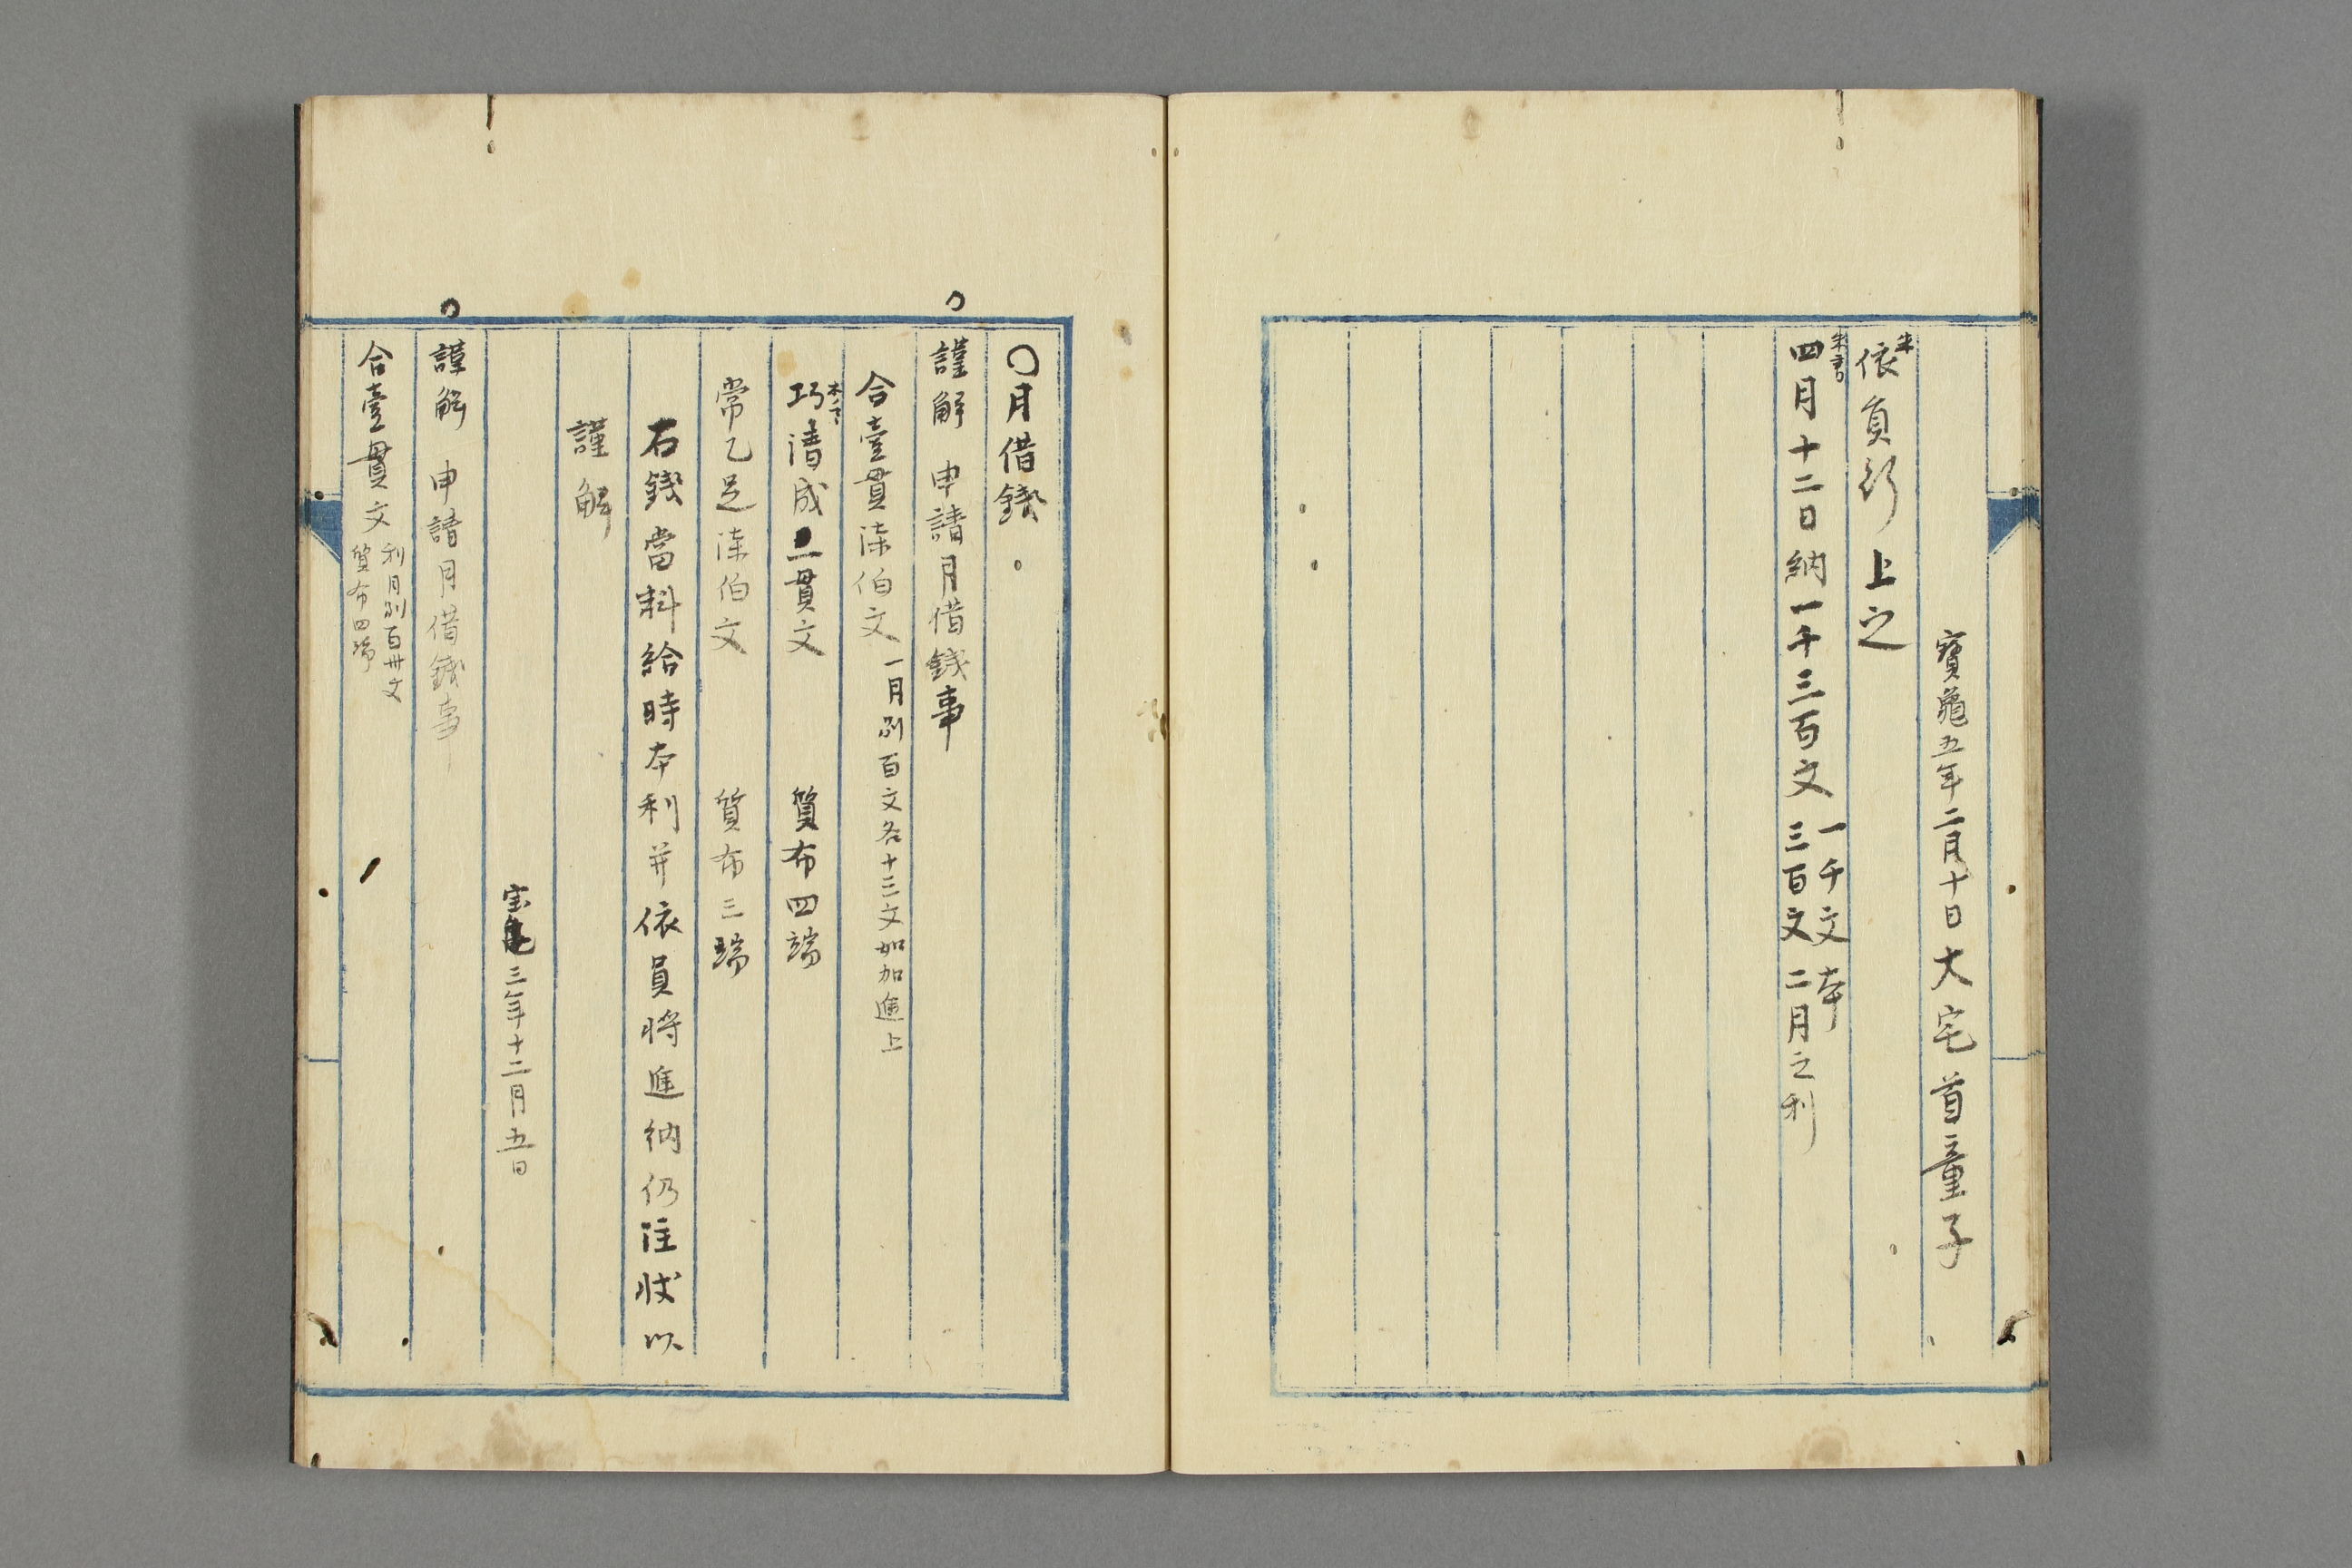 寶龜五年二月十日大宅首童子
朱
依員 上之
朱書
四月十二日納一千三百文 一千文本
三百文二月之利
〇月借錢
謹解 申請月借錢事
合壹貫漆伯文 一月別百文各十三文如加進上
巧清成一貫文 質布四端
常乙足漆伯文 質布三端
石錢當料給時本利并依員将進納仍注状以
謹解
宝亀三年十二月五日
謹解 申請月借錢事
合壹貫文 利月別百卅文
質布四端